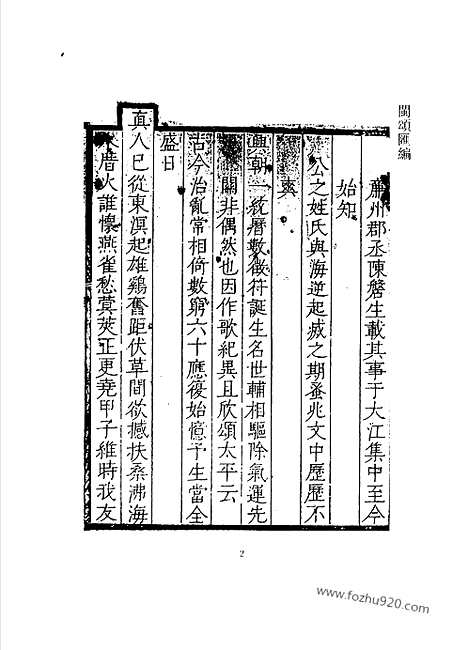 閩頌匯編
廉州郡丞陳詹生載其事于大江集中至今
始知
公之姓氏與海逆起滅之期蚤兆文中歷歷不
爽
興朝一統曆數徵符誕生名世輔相驅除氣運先
關非偶然也因作歌紀異且欣頌太平云
古今治亂常相倚數窮六十應復始憶予生當全
盛日
真人已從東溟起雄鷄奮距伏草間欲撼扶桑沸海
厝火誰懷燕雀愁蓂莢正更堯甲子維時我友
2
www.fozhu920.com